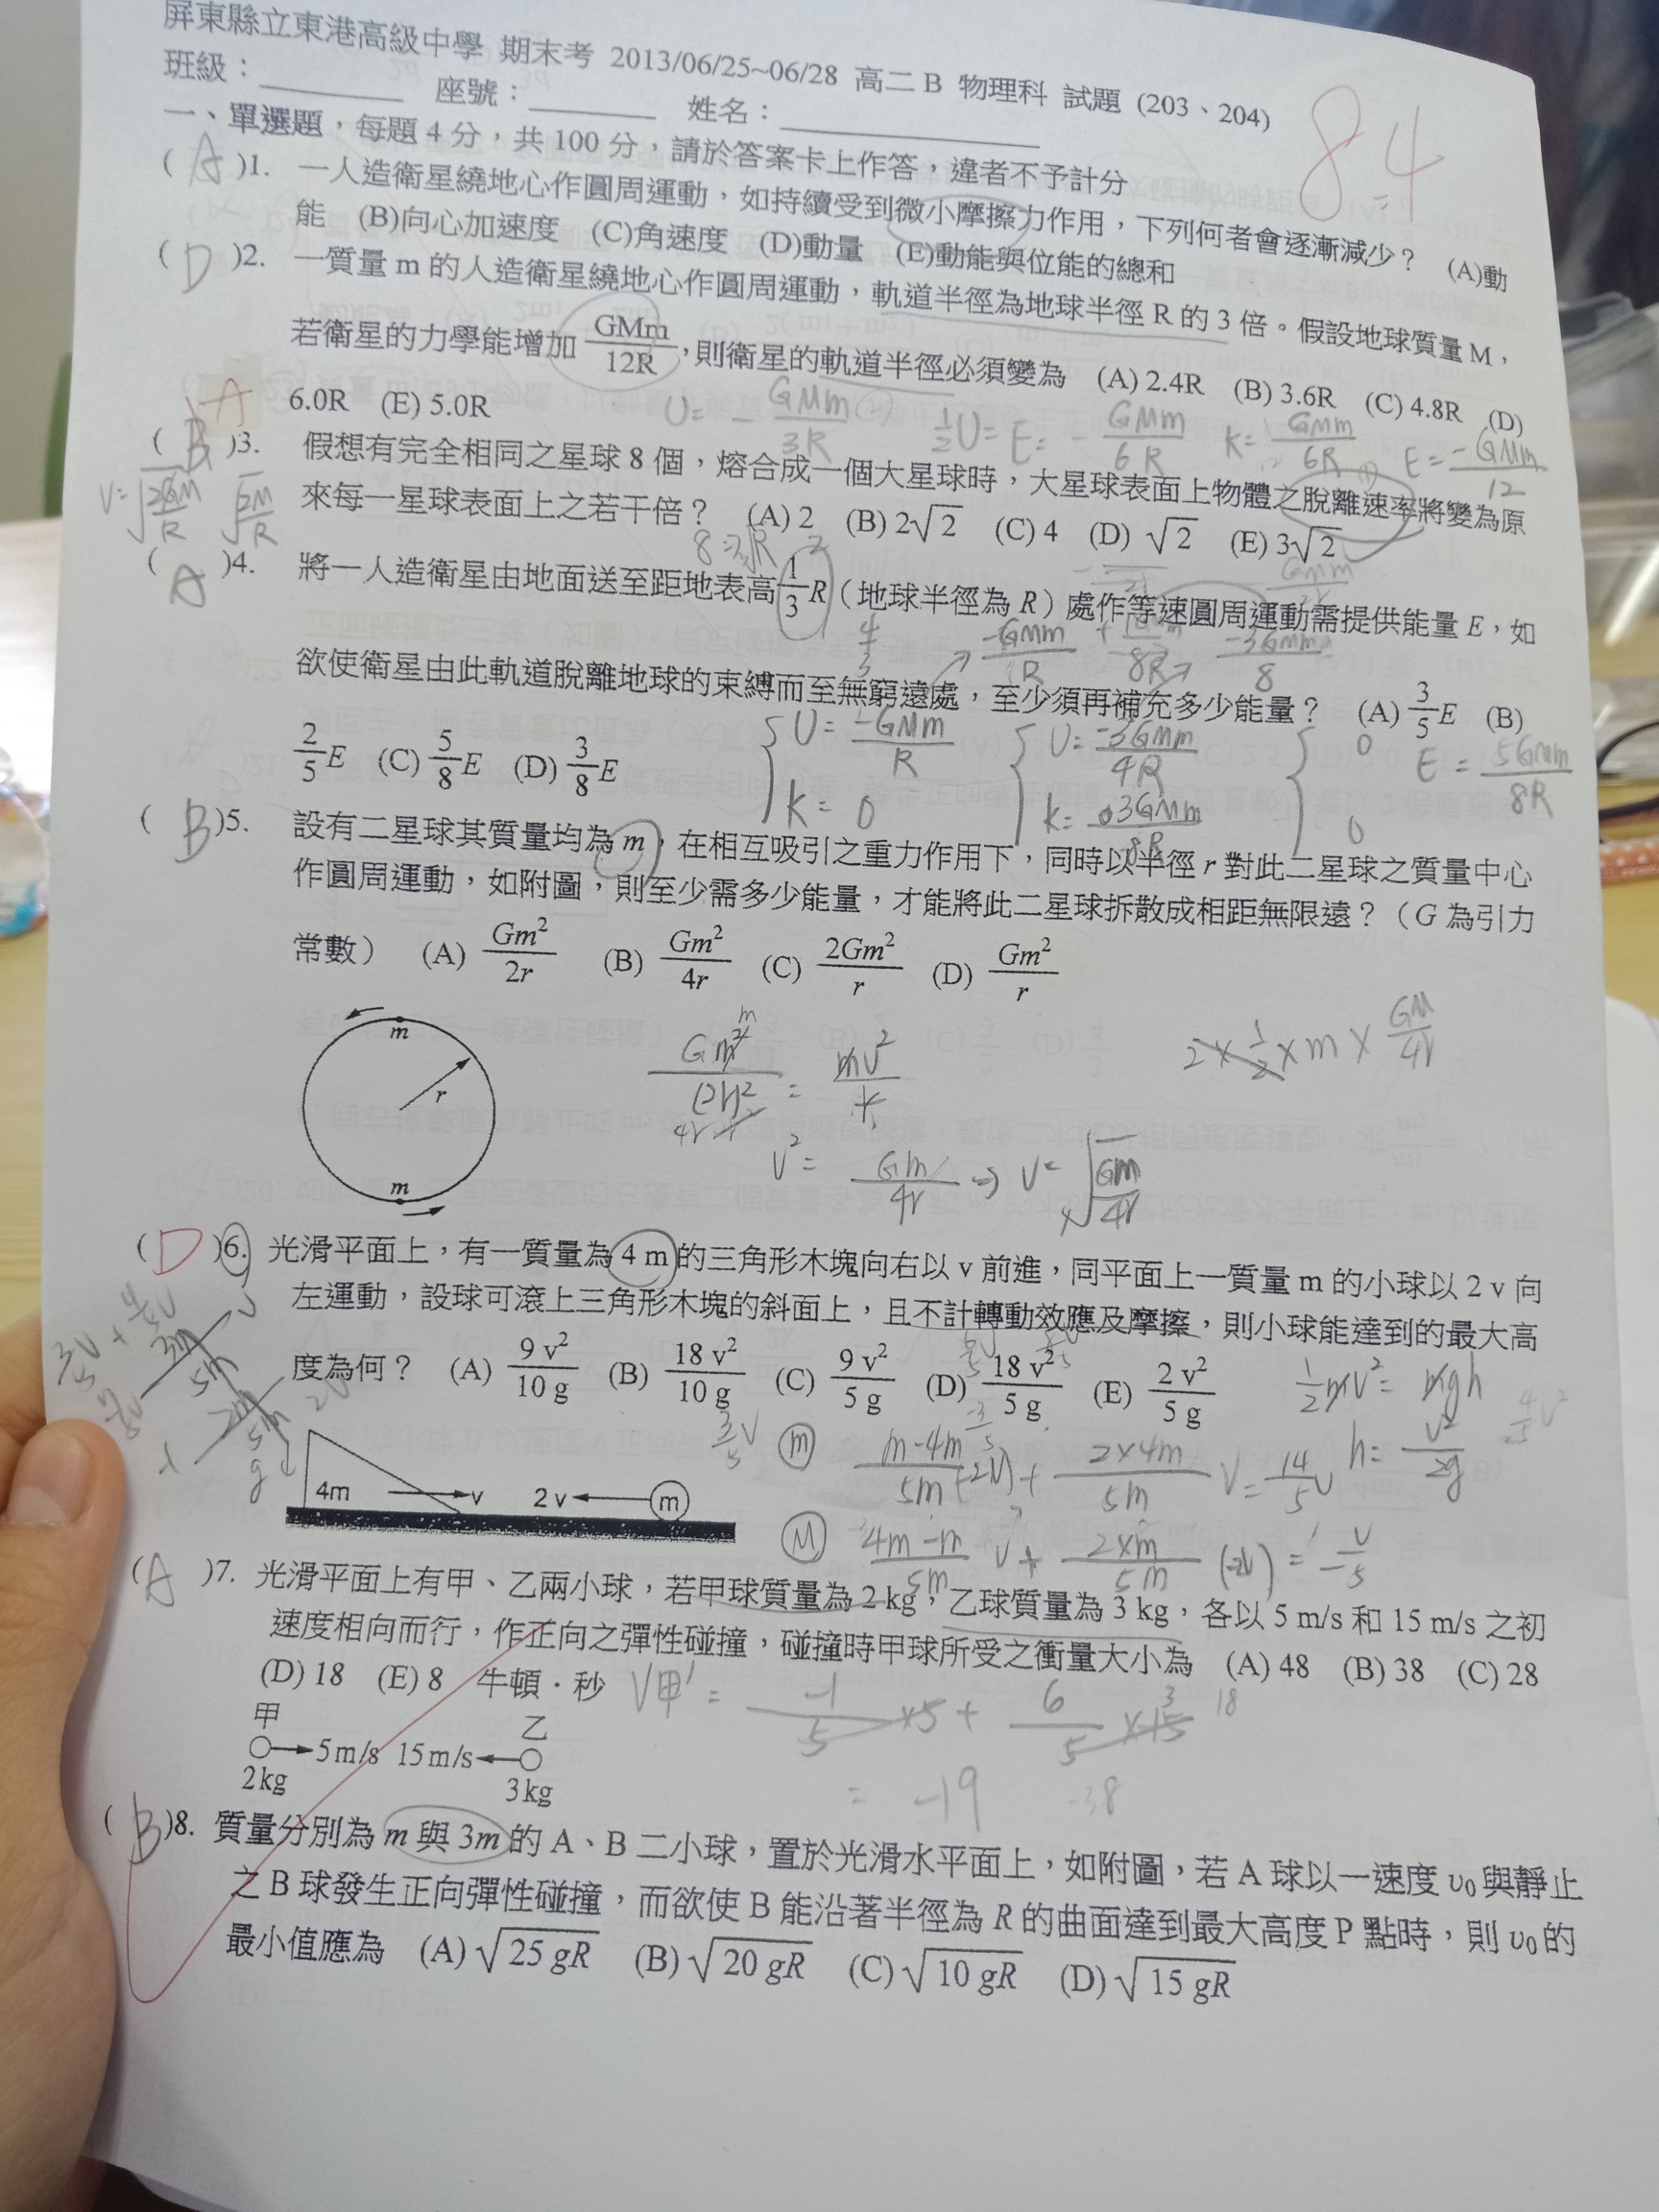 屏東縣立東港高級中學 期末考 2013/06/25~06/28 高二 B 物理科 試題 (203、204)
班級： 座號： 姓名：
84
一、單選題，每題 4 分，共 100 分，請於答案卡上作答，違者不予計分
( A )1. 一人造衛星繞地心作圓周運動，如持續受到微小摩擦力作用，下列何者會逐漸減少？ (A)動
能 (B)向心加速度 (C)角速度 (D)動量 (E)動能與位能的總和
( D )2. 一質量 m 的人造衛星繞地心作圓周運動，軌道半徑為地球半徑 R 的 3 倍。假設地球質量 M，
若衛星的力學能增加 GMm/12R，則衛星的軌道半徑必須變為 (A) 2.4R (B) 3.6R (C) 4.8R (D)
6.0R (E) 5.0R
U= -GMm/3R
½U=E= -GMm/6R K= GMm/6R E= -GMm/12
A
( B )3. 假想有完全相同之星球 8 個，熔合成一個大星球時，大星球表面上物體之脫離速率將變為原
來每一星球表面上之若干倍？ (A) 2 (B) 2√2 (C) 4 (D) √2 (E) 3√2
V=√2GM/R √2M/R
( A )4. 將一人造衛星由地面送至距地表高 1/3 R（地球半徑為 R）處作等速圓周運動需提供能量 E，如
4/3 -GMm/R -3GMm/8
欲使衛星由此軌道脫離地球的束縛而至無窮遠處，至少須再補充多少能量？ (A) 3/5 E (B)
2/5 E (C) 5/8 E (D) 3/8 E
U= -GMm/R U= -3GMm/4R 0 E = 5GMm/8R
K= 0 K= 3GMm/8R 0
( B )5. 設有二星球其質量均為 m，在相互吸引之重力作用下，同時以半徑 r 對此二星球之質量中心
作圓周運動，如附圖，則至少需多少能量，才能將此二星球拆散成相距無限遠？（G 為引力
常數） (A) Gm²/2r (B) Gm²/4r (C) 2Gm²/r (D) Gm²/r
m
r
m
Gm²/(2r)² = mv²/r
2×½×m×GM/4r
V²= Gm/4r ⇒ V= √GM/4r
( D )6. 光滑平面上，有一質量為 4 m 的三角形木塊向右以 v 前進，同平面上一質量 m 的小球以 2 v 向
左運動，設球可滾上三角形木塊的斜面上，且不計轉動效應及摩擦，則小球能達到的最大高
度為何？ (A) 9 v²/10 g (B) 18 v²/10 g (C) 9 v²/5 g (D) 18 v²/5 g (E) 2 v²/5 g
½mV²= mgh
h= V²/2g
4m v 2 v m
m m-4m/5m (-2V) + 2×4m/5m V = 14/5 V
M 4m-m/5m V + 2×m/5m (-2V) = -V/5
( A )7. 光滑平面上有甲、乙兩小球，若甲球質量為 2 kg，乙球質量為 3 kg，各以 5 m/s 和 15 m/s 之初
速度相向而行，作正向之彈性碰撞，碰撞時甲球所受之衝量大小為 (A) 48 (B) 38 (C) 28
(D) 18 (E) 8 牛頓．秒
V甲' = -1/5 ×5 + 6/5 ×15 18
= -19 -38
甲 乙
5 m/s 15 m/s
2 kg 3 kg
( B )8. 質量分別為 m 與 3m 的 A、B 二小球，置於光滑水平面上，如附圖，若 A 球以一速度 υ₀ 與靜止
之 B 球發生正向彈性碰撞，而欲使 B 能沿著半徑為 R 的曲面達到最大高度 P 點時，則 υ₀ 的
最小值應為 (A) √25 gR (B) √20 gR (C) √10 gR (D) √15 gR